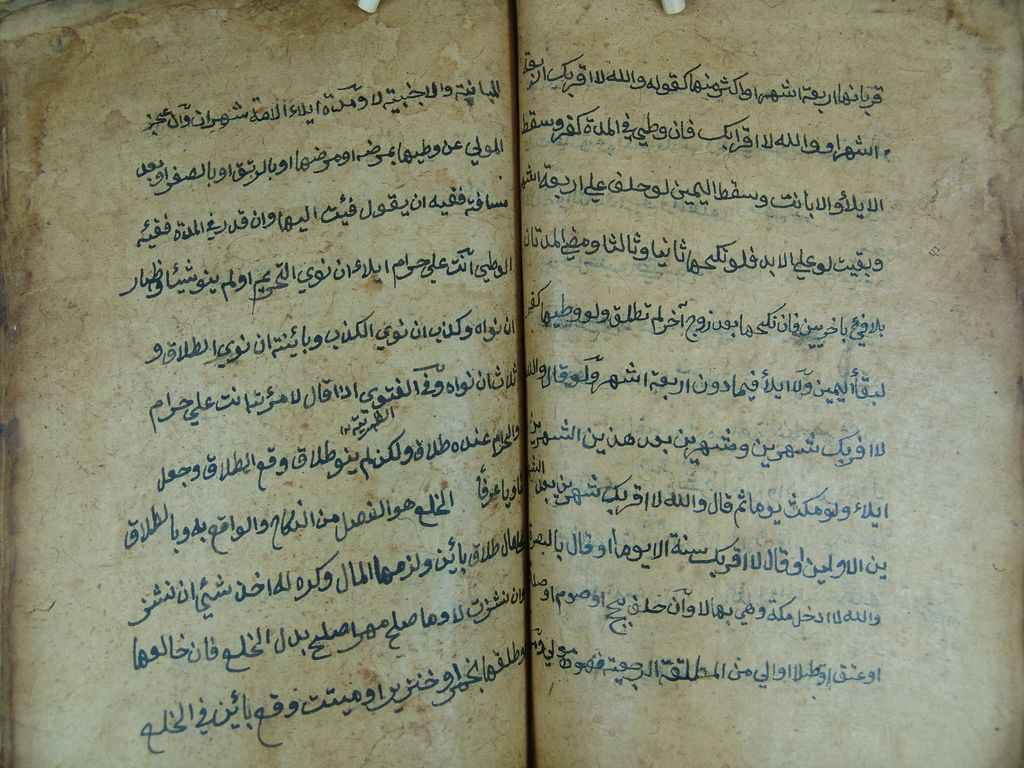 قربانها اربعة اشهر او اكثر منها كقوله والله لا اقربك اربعة
اشهر او والله لا اقربك فان وطئ في المدة كفر وسقط
الايلأ والا بانت وسقط اليمين لو حلف علي اربعة اشهر
وبقيت لو علي الابد فلو نكحها ثانيا وثالثا ومضي المدتان
بلا فئ با خريين فان نكحها بعد زوج آخر لم تطلق ولو وطيها كفر
لبقأ اليمين ولا ايلأ فيما دون اربعة اشهر ولو قال والله
لا اقربك شهرين وشهرين بعد هذين الشهرين
ايلاء ولو مكث يوما ثم قال والله لا اقربك شهرين بعد الشهر
ين الاولين او قال لا اقربك سنة الا يوما او قال بالبصرة
والله لا ادخل مكة وهي بها لا وآن حلف بحج او صوم او صدقة
او عتق او طلا او الي من المطلقة الرجعية فهو مولي ومن
المبانة والاجنبية لا ومدة ايلاء الامة شهران وآن عجز
المولي عن وطيها بمرضه او مرضها او بالرتق او بالصغر او بعد
مسافة ففيه ان يقول فئت اليها وان قدر في المدة ففيئه
الوطي آنت علي حرام ايلاء ان نوي التحريم او لم ينو شيئا وظهار
ان نواه وكذب ان نوي الكذب وبائنة ان نوي الطلاق و
ثلاث ان نواه وفي الفتوي اذا قال لامرته انت علي حرام
والحرام عنده طلاق ولكن لم ينو طلاق وقع الطلاق وجعل
ناويا عرفأ الخلع هو الفصل من النكاح والواقع به وبالطلاق
علي مال طلاق بائن ولزمها المال وكره له اخذ شئي ان نشز
وان نشزت لا وما صلح مهرا صلح بدل الخلع فان خالعها
او طلقها بخمر او خنزير او ميتت وقع بائن في الخلع